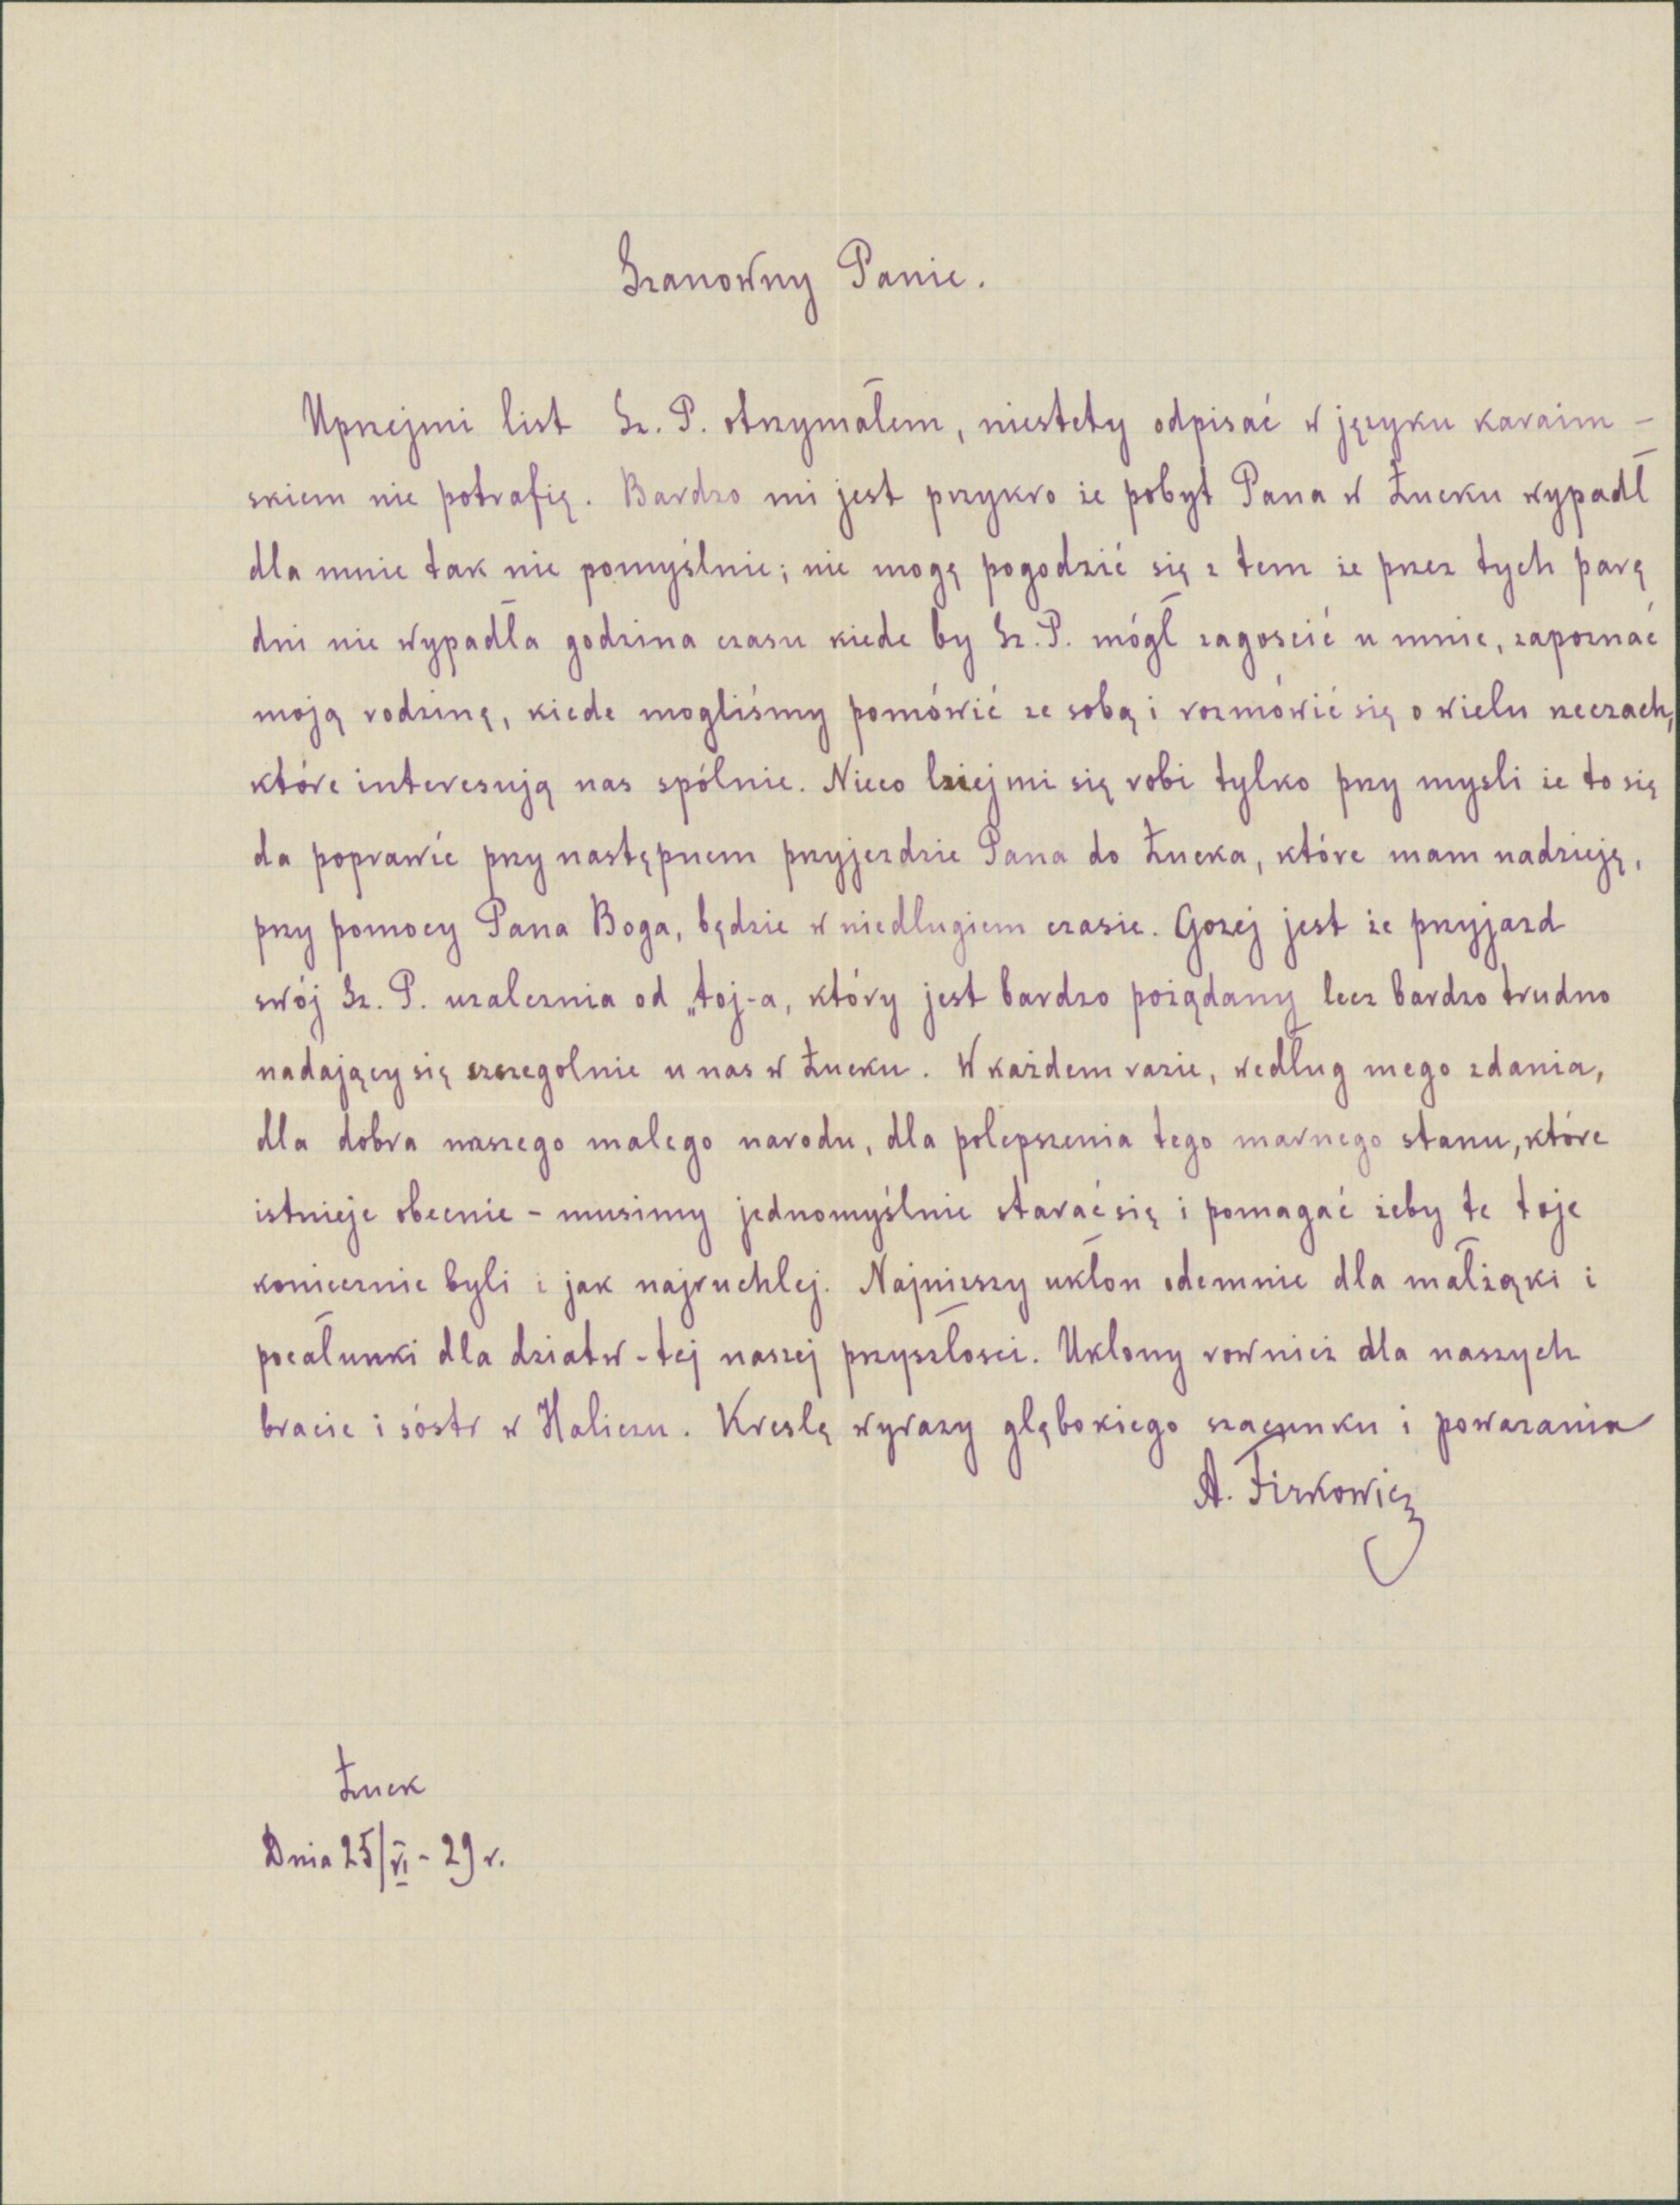 Szanowny Panie.
Uprzejmi list Sz. P. otrzymałem, niestety odpisać w języku karaim-
skiem nie potrafię. Bardzo mi jest przykro że pobyt Pana w Łucku wypadł
dla mnie tak nie pomyślnie; nie mogę pogodzić się z tem że przez tych parę
dni nie wypadła godzina czasu kiede by Sz. P. mógł zagoscić u mnie, zapoznać
moją rodzinę, kiede mogliśmy pomówić ze sobą i rozmówić się o wielu rzeczach,
które interesują nas spólnie. Nieco lżiej mi się robi tylko przy mysli że to się
da poprawić przy następnem przyjezdzie Pana do Łucka, które mam nadzieję,
przy pomocy Pana Boga, będzie w niedlugiem czasie. Gorzej jest że przyjazd
swój Sz. P. uzaleznia od „toj-a, który jest bardzo pożądany lecz bardzo trudno
nadający się szczegolnie u nas w Łucku. W każdem razie, według mego zdania,
dla dobra naszego malego narodu, dla polepszenia tego marnego stanu, które
istnieje obecnie - musimy jednomyślnie starać się i pomagać żeby te toje
koniecznie byli i jak najruchlej. Najnizszy ukłon odemnie dla małżąki i
pocałunki dla dziatw - tej naszej przyszłosci. Uklony rownież dla naszych
bracie i sóstr w Haliczu. Kreslę wyrazy glębokiego szacunku i powazania
A. Firkowicz
Łuck
Dnia 25/VI - 29 r.